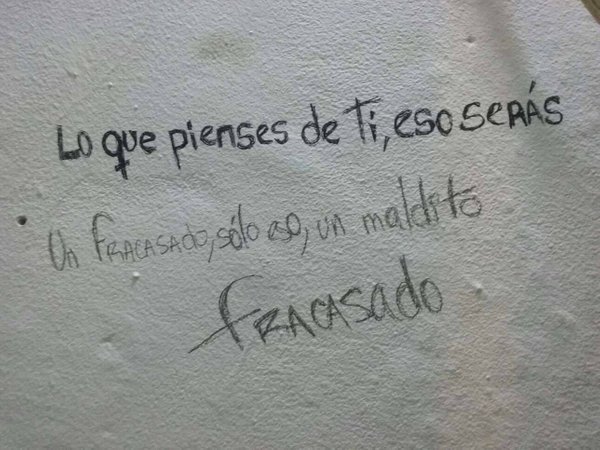 Lo que pienses de Ti, eso serás
Un fracasado, sólo eso, un maldito
fracasado